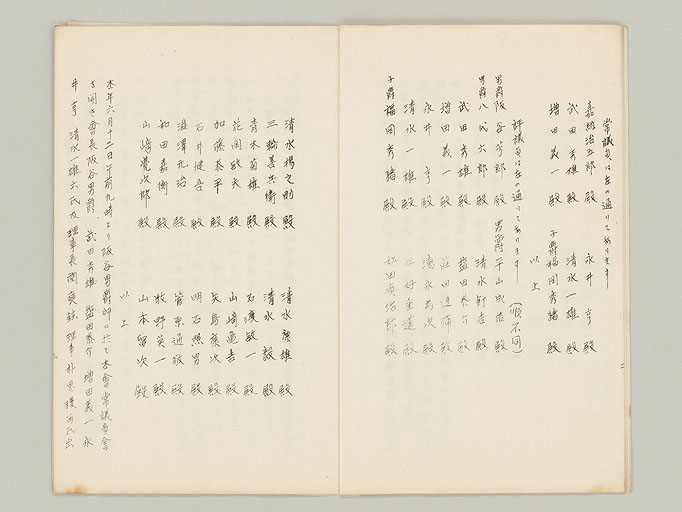 常議員は左の通りであります
嘉納治五郎 殿 永井 亨 殿
武田秀雄 殿 清水一雄 殿
増田義一 殿 子爵福岡秀猪 殿
以上
評議員は左の通りであります (順不同)
男爵阪谷芳郎 殿 男爵平山 殿
男爵八代六郎 殿 清水釘吉 殿
武田秀雄 殿 益田 殿
増田義一 殿 荘田達弥 殿
永井 亨 殿 次 殿
清水一雄 殿 三好重道 殿
子爵福岡秀猪 殿 松田貞治郎 殿
清水揚之助 殿 清水康雄 殿
三輪善兵衛 殿 清水 毅 殿
青木菊雄 殿 石渡敏一 殿
荘岡敬夫 殿 山崎亀吉 殿
加藤恭平 殿 矢島 次 殿
石井健吾 殿 明石照男 殿
渋澤元治 殿 菅原通敬 殿
和田嘉衡 殿 牧野英一 殿
山崎覚次郎 殿 山本留次 殿
以上
本年六月十二日午前九時より阪谷男爵邸に於て本會常議員會
を開き會長阪谷男爵 武田秀雄 益田 増田義一 永
井亨 清水一雄六氏及理事長関 理事朴思稷両氏出